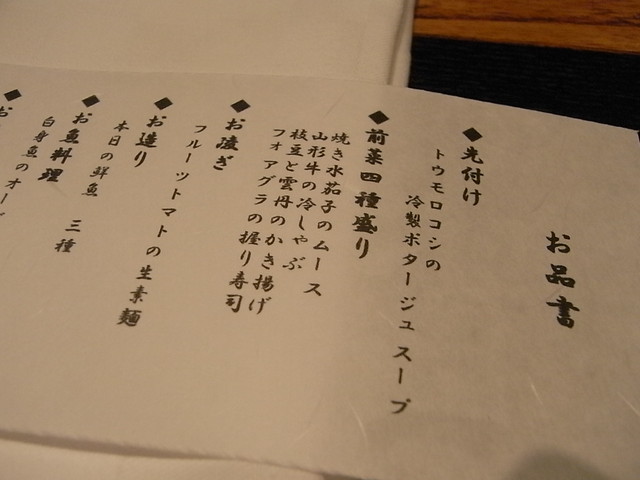 お品書
◆先付け
トウモロコシの
冷製ポタージュスープ
◆前菜四種盛り
焼き水茄子のムース
山形牛の冷しゃぶ
枝豆と雲丹のかき揚げ
フォアグラの握り寿司
◆お凌ぎ
フルーツトマトの生素麺
◆お造り
本日の鮮魚 三種
◆お魚料理
白身魚のオー
◆お